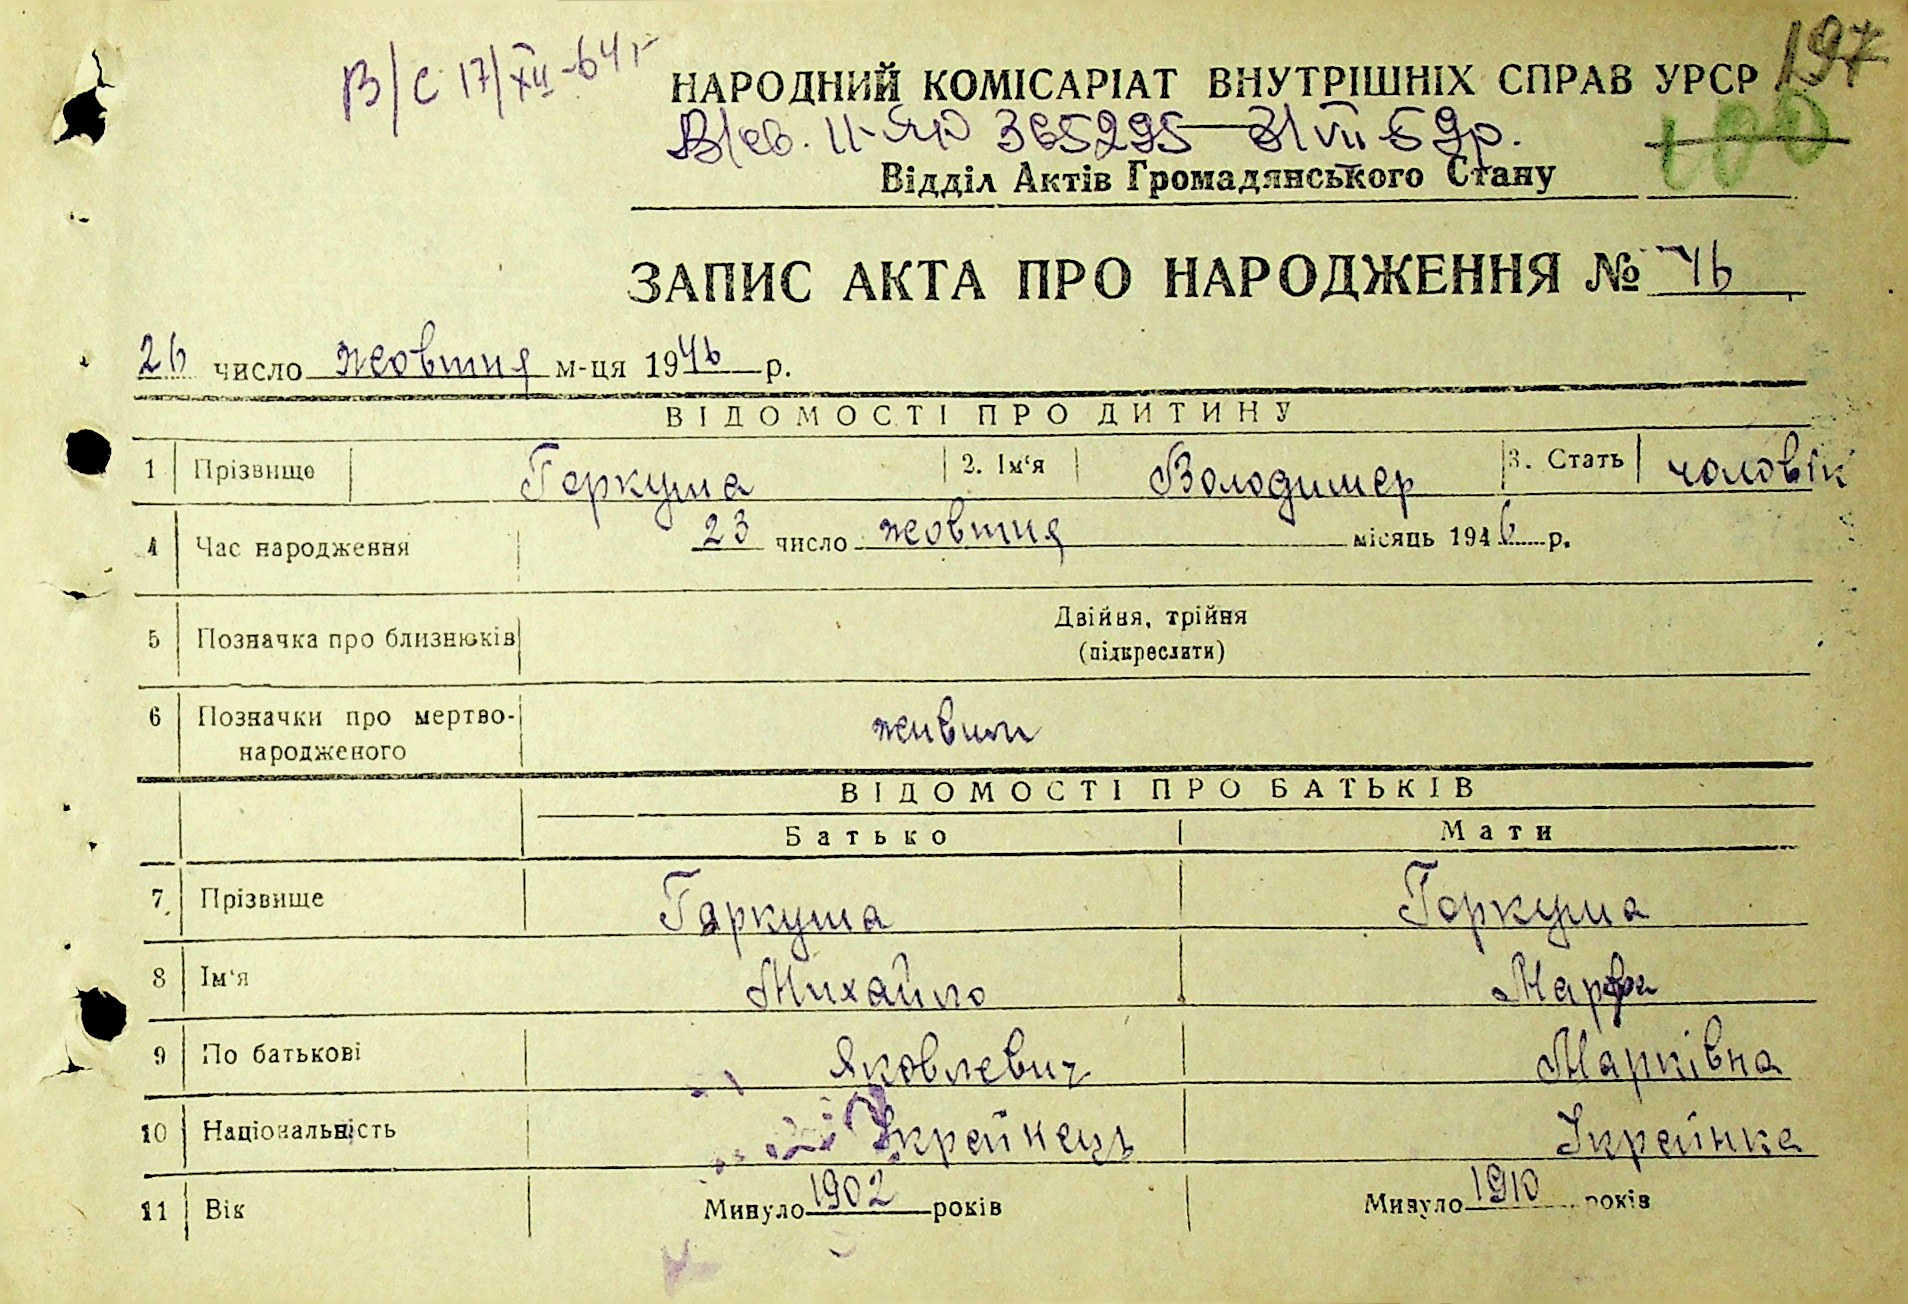 197
В/С 17/XII-64 г
НАРОДНИЙ КОМІСАРІАТ ВНУТРІШНІХ СПРАВ УРСР
В/св. II-ЯЮ 365295 31/VII-59р.
100
Відділ Актів Громадянського Стану
ЗАПИС АКТА ПРО НАРОДЖЕННЯ № 46
26 число жовтня м-ця 1946 р.
ВІДОМОСТІ ПРО ДИТИНУ
1 Прізвище Гаркуша 2. Ім‘я Володимер 3. Стать чоловік
4 Час народження 23 число жовтня місяць 1946 р.
5 Позначка про близнюків Двійня, трійня
(підкреслити)
6 Позначки про мертво-
народженого живим
ВІДОМОСТІ ПРО БАТЬКІВ
Батько Мати
7. Прізвище Гаркуша Гаркуша
8 Ім‘я Михайло Марфа
9 По батькові Яковлевич Марківна
10 Національність Украйнець Украйнка
11 Вік Минуло 1902 років Минуло 1910 років